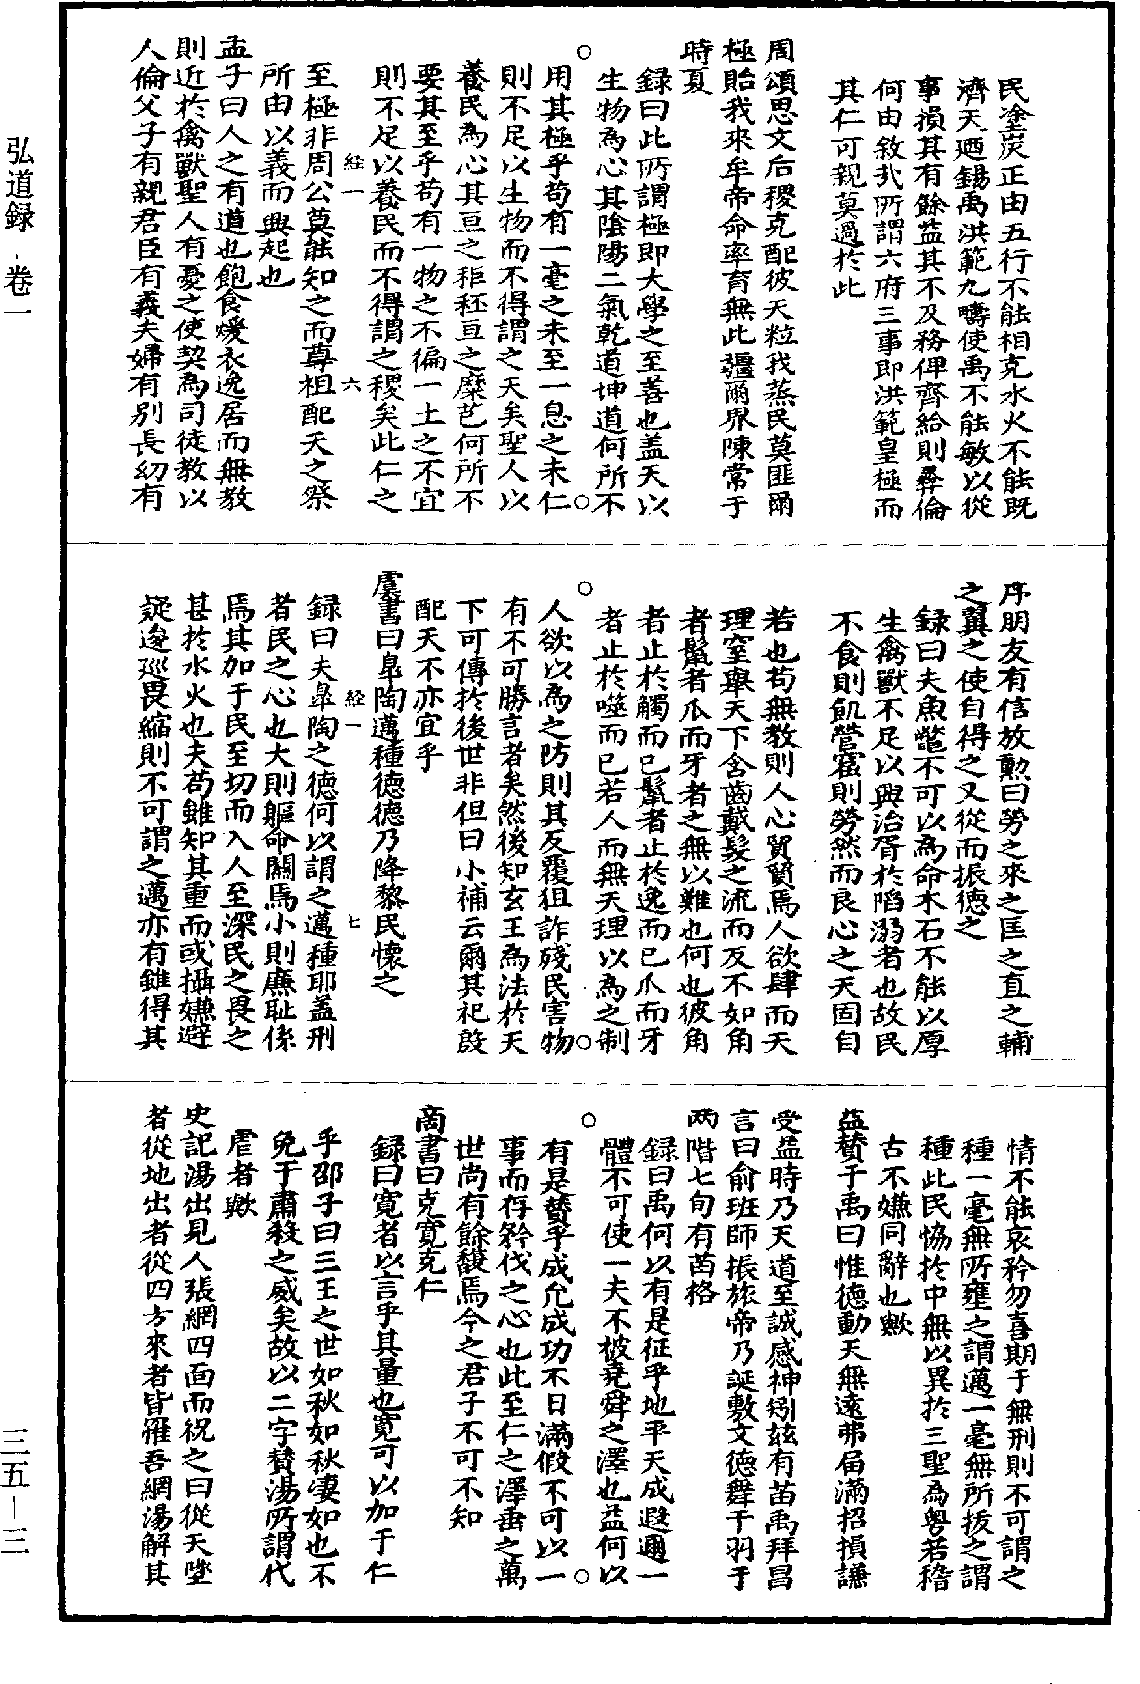 民塗炭正由五行不能相克水火不能既
濟天廼錫禹洪範九疇使禹不能敏以從
事損其有餘益其不及務俾齊給則彛倫
何由敘哉所謂六府三事即洪範皇極而
其仁可親莫過於此
周頌思文后稷克配彼天粒我蒸民莫匪爾
極貽我來牟帝命率育無此疆爾界陳常于
時夏
録曰此所謂極即大學之至善也盖天以
生物為心其陰陽二氣乾道坤道何所不
用其極乎苟有一毫之未至一息之未仁
則不足以生物而不得謂之天矣聖人以
養民為心其亘之秬秠亘之糜芑何所不
要其至乎苟有一物之不徧一土之不宜
則不足以養民而不得謂之稷矣此仁之
經一 六
至極非周公莫能知之而尊祖配天之祭
所由以義而興起也
孟子曰人之有道也飽食煖衣逸居而無教
則近於禽獸聖人有憂之使契為司徒教以
人倫父子有親君臣有義夫婦有别長幼有
序朋友有信放勲曰勞之來之匡之直之輔
之翼之使自得之又從而振德之
録曰夫魚鼈不可以為命木石不能以厚
生禽獸不足以興治胥於陷溺者也故民
不食則飢營窟則勞然而良心之天固自
若也苟無教則人心貿貿焉人欲肆而天
理窒舉天下含齒戴髮之流而反不如角
者鬣者爪而牙者之無以難也何也彼角
者止於觸而已鬣者止於逸而已爪而牙
者止於噬而已若人而無天理以為之制
人欲以為之防則其反覆狙詐殘民害物
有不可勝言者矣然後知玄王為法於天
下可傳於後世非但曰小補云爾其祀啟
配天不亦宜乎
虞書曰臯陶邁種德德乃降黎民懷之
經一 七
録曰夫臯陶之德何以謂之邁種耶盖刑
者民之心也大則軀命關焉小則廉耻係
焉其加于民至切而入人至深民之畏之
甚於水火也夫苟雖知其重而或攝嫌避
疑逡巡畏縮則不可謂之邁亦有雖得其
情不能哀矜勿喜期于無刑則不可謂之
種一毫無所壅之謂邁一毫無所抜之謂
種此民恊於中無以異於三聖為粤若稽
古不嫌同辭也歟
益賛于禹曰惟德動天無遠弗届滿招損謙
受益時乃天道至誠感神矧兹有苗禹拜昌
言曰俞班師振旅帝乃誕敷文德舞干羽于
两階七旬有苗格
録曰禹何以有是征乎地平天成遐邇一
體不可使一夫不被堯舜之澤也益何以
有是賛乎成允成功不日滿假不可以一
事而存矜伐之心也此至仁之澤垂之萬
世尚有餘馥焉今之君子不可不知
商書曰克寛克仁
録曰寛者以言乎其量也寛可以加于仁
乎邵子曰三王之世如秋如秋凄如也不
免于肅殺之威矣故以二字賛湯所謂代
虐者歟
史記湯出見人張網四面而祝之曰從天墜
者從地出者從四方來者皆罹吾網湯解其
弘道録 卷一
三五-三